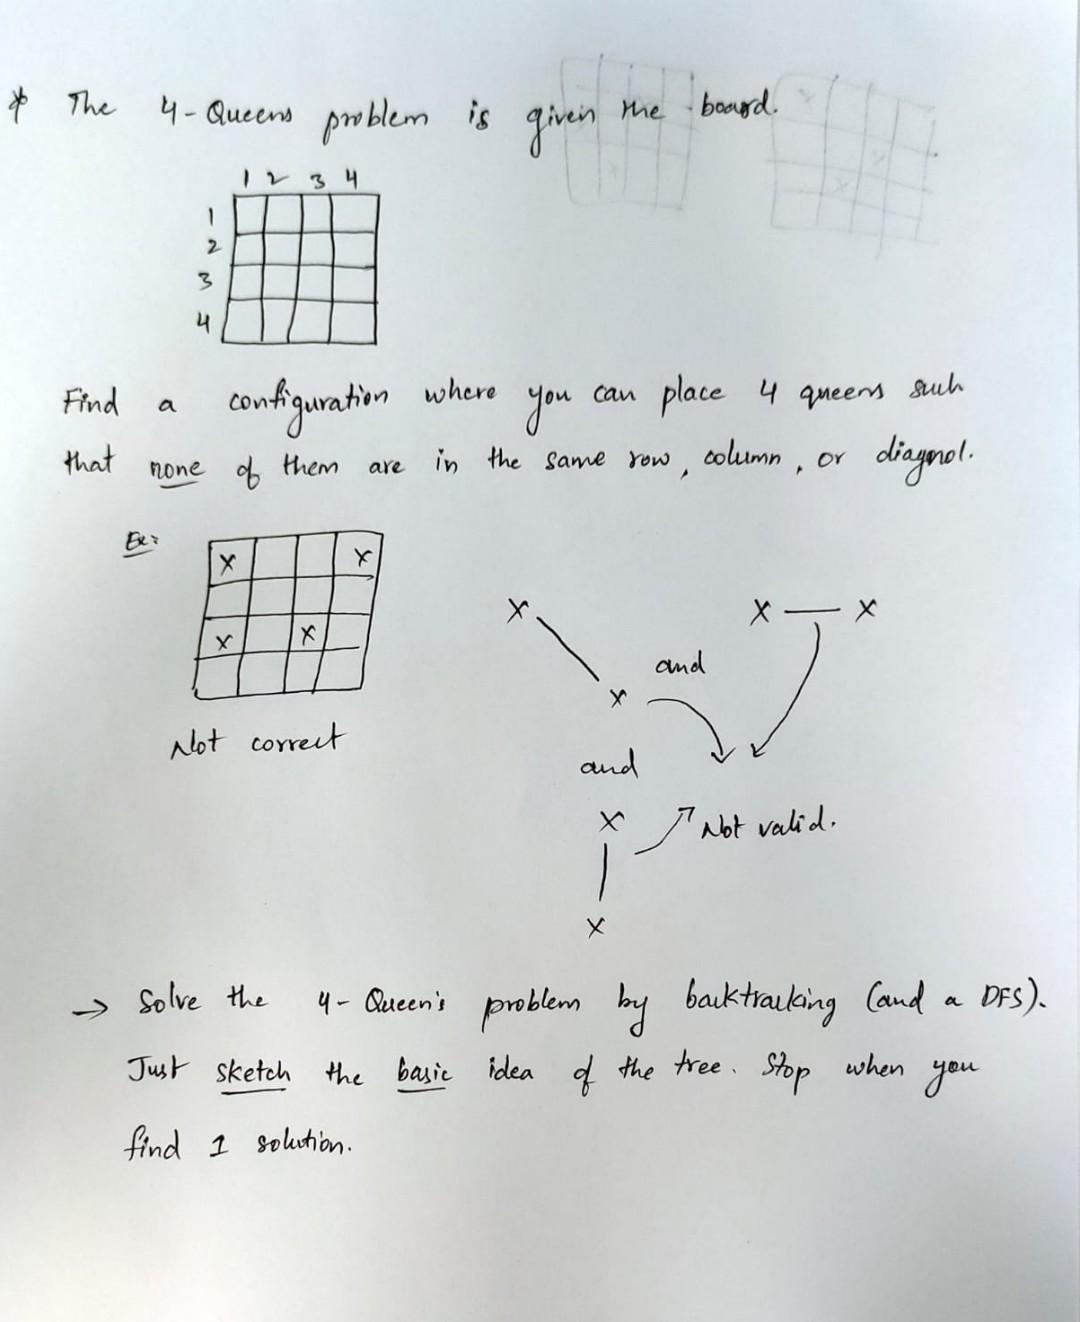 * The 4-Queens problem is given the board.
1 2 3 4
1
2
3
4
Find a configuration where you can place 4 queens such
that none of them are in the same row, column, or diagnol.
Ex:
X X
X X
Not correct
X X — X
and
X
and
X
Not valid.
X
→ Solve the 4-Queen's problem by backtracking (and a DFS).
Just sketch the basic idea of the tree. Stop when you
find 1 solution.